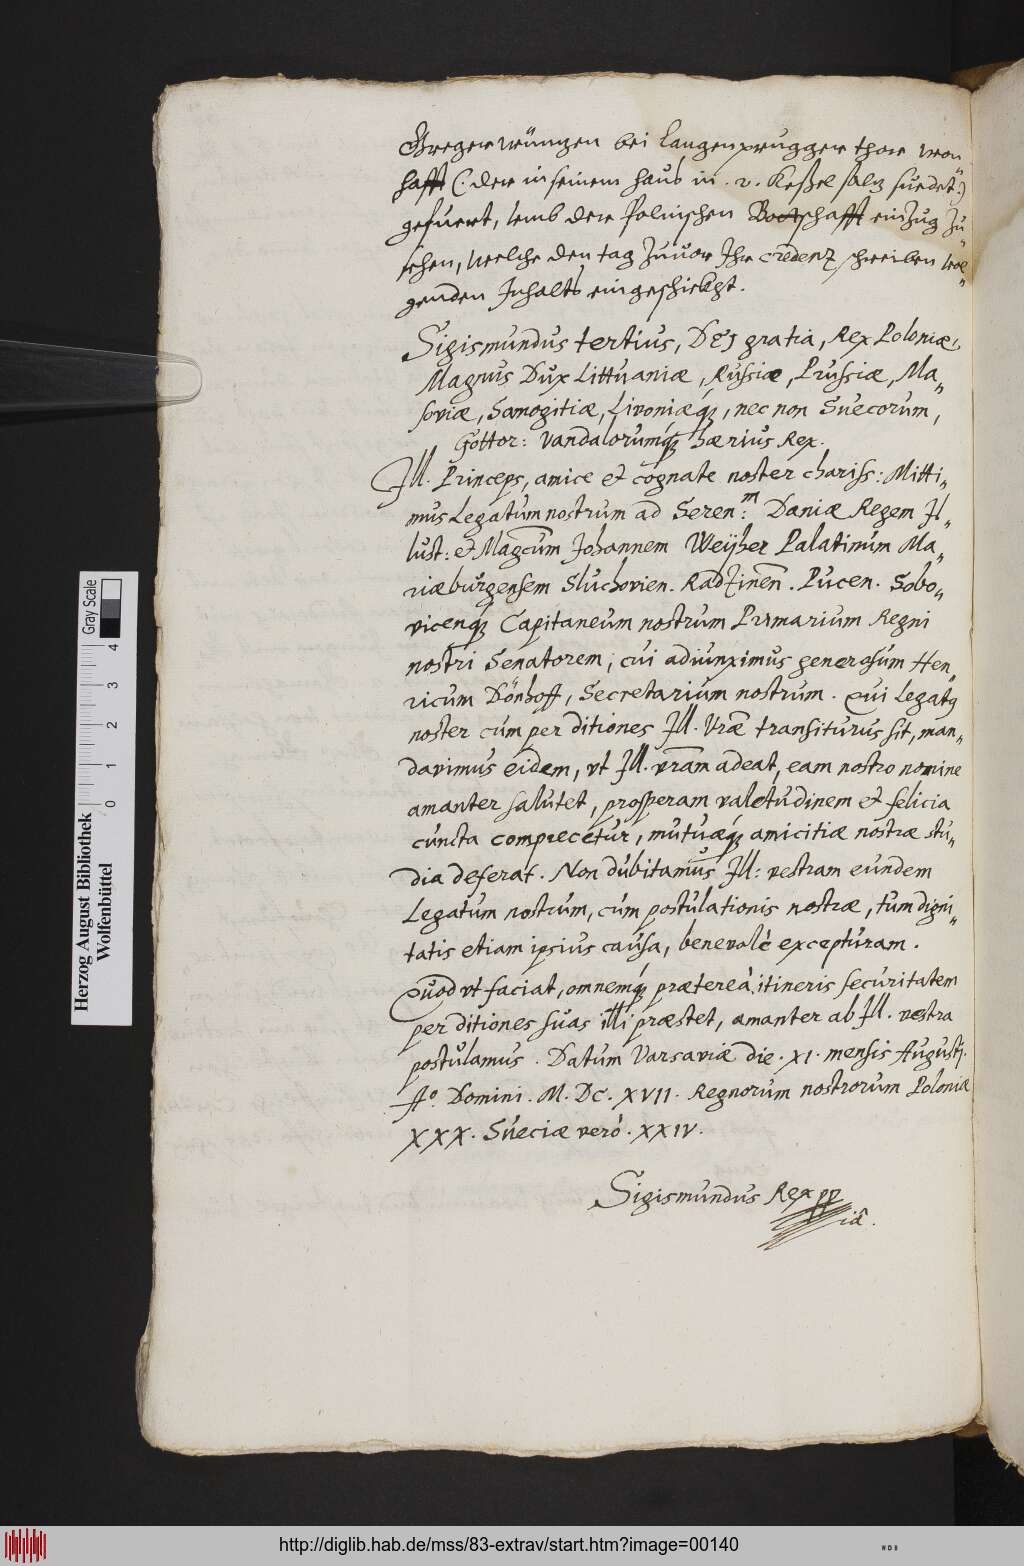 Greger wünzen bei Langenprugger thor won„
hafft (: der in seinem haus in . 2 . Keßel salz suedet :)
gefuert, umb der Polnischen Bottschafft einzug zu„
sehen, welche den tag zuuor Ihr credenz schreiben wol„
genden Inhalts eingeschickht.
Sigismundus tertius, DEJ gratia, Rex Poloniæ,
Magnus Dux Littuaniæ, Russiæ, Prussiæ, Ma„
soviæ, Samogitiæ, Livoniæq́, nec non Suecorum,
Gottor: Vandalorumq́ hærius Rex.
Jll. Princeps, amice et cognate noster chariss: Mitti„
mus Legatum nostrum ad Seren:ᵐ Daniæ Regem Jl„
lust: et Magcum Johannem Weÿher Palatinum Ma„
riæburgensem Sluchovien. Radzinen. Pucen. Sobo„
vicenq́ Capitaneum nostrum Primarium Regni
nostri Senatorem; cui adiunximus generosum Hen„
ricum Dönhoff, Secretarium nostrum. Qui Legatꝰ
noster cum per ditiones Jll. Vræ transiturus sit, man„
davimus eidem, vt Jll. vram adeat, eam nostro nomine
amanter salutet, prosperam valetudinem et felicia
cuncta comprecetur, mutuæq́ amicitiæ nostræ stu„
dia deferat. Non dubitamus Jll: vestram eundem
Legatum nostrum, cum postulationis nostræ, tum digni„
tatis etiam ipsius causa, benevolè excepturam.
Quod vt faciat, omnemq́ prætereà itineris securitatem
per ditiones suas illi præstet, amanter ab Jll. vestra
postulamus. Datum Varsaviæ die . XI . mensis Augustj.
Aº. Domini . M. DC. XVII. Regnorum nostrorum Poloniæ
XXX. Sueciæ verò . XXIV.
Sigismundus Rex pp
ia.
Gray Scale
0 1 2 3 4
Herzog August Bibliothek
Wolfenbüttel
http://diglib.hab.de/mss/83-extrav/start.htm?image=00140
WDB